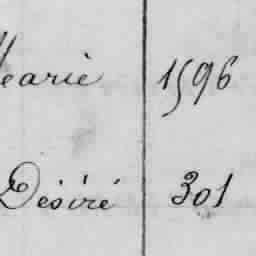 Marie 1596
Désiré 301